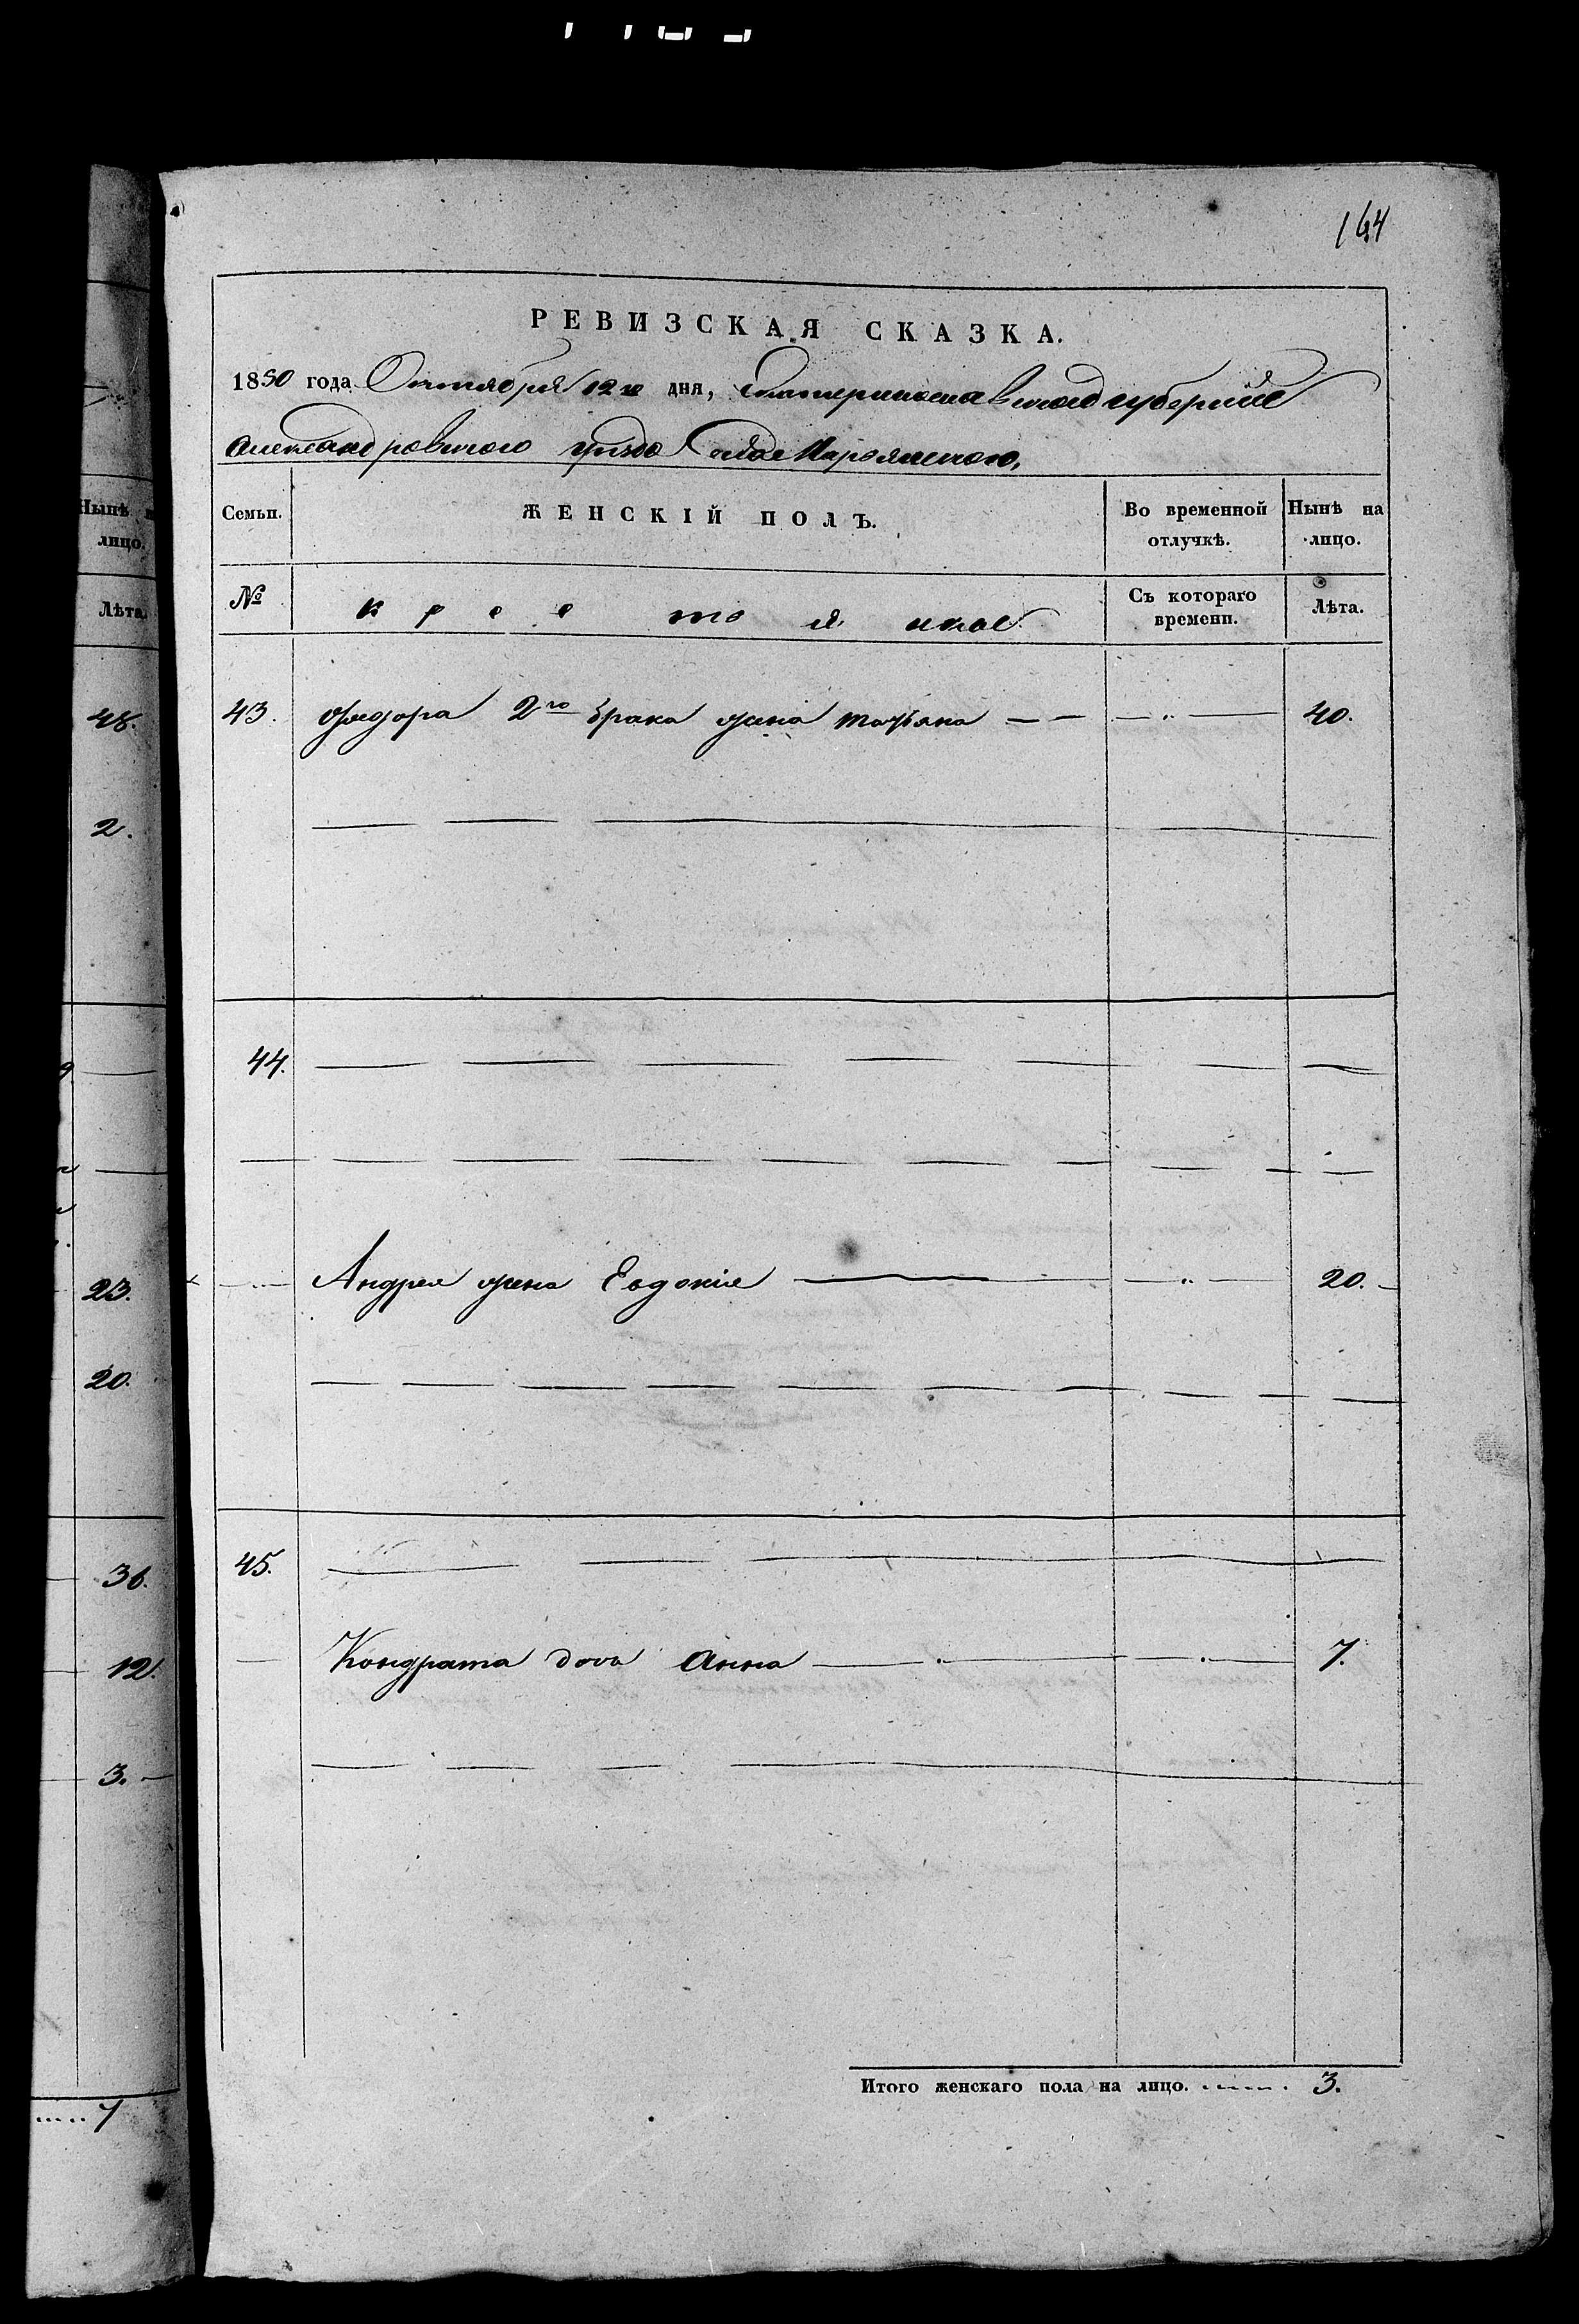 164
РЕВИЗСКАЯ СКАЗКА.
1850 года Октября 12 го дня, Екатеринославской губернiи
Александровского уѣзда Села
Семьи. ЖЕНСКІЙ ПОЛЪ. Во временной отлучкѣ. Нынѣ на лицо.
№ крестьянкае Съ котораго времени. Лѣта.
43. Федора 2го брака жена татьяна — — — „ — 40.
44.
Андрея жена Евдокiя — — „ — 20.
45.
Кондрата дочь Анна — „ — — „ — 7.
Итого женскаго пола на лицо. ...... 3.
Нынѣ
лицо.
Лѣта.
48.
2.
23.
20.
36.
12.
3.
..... 7